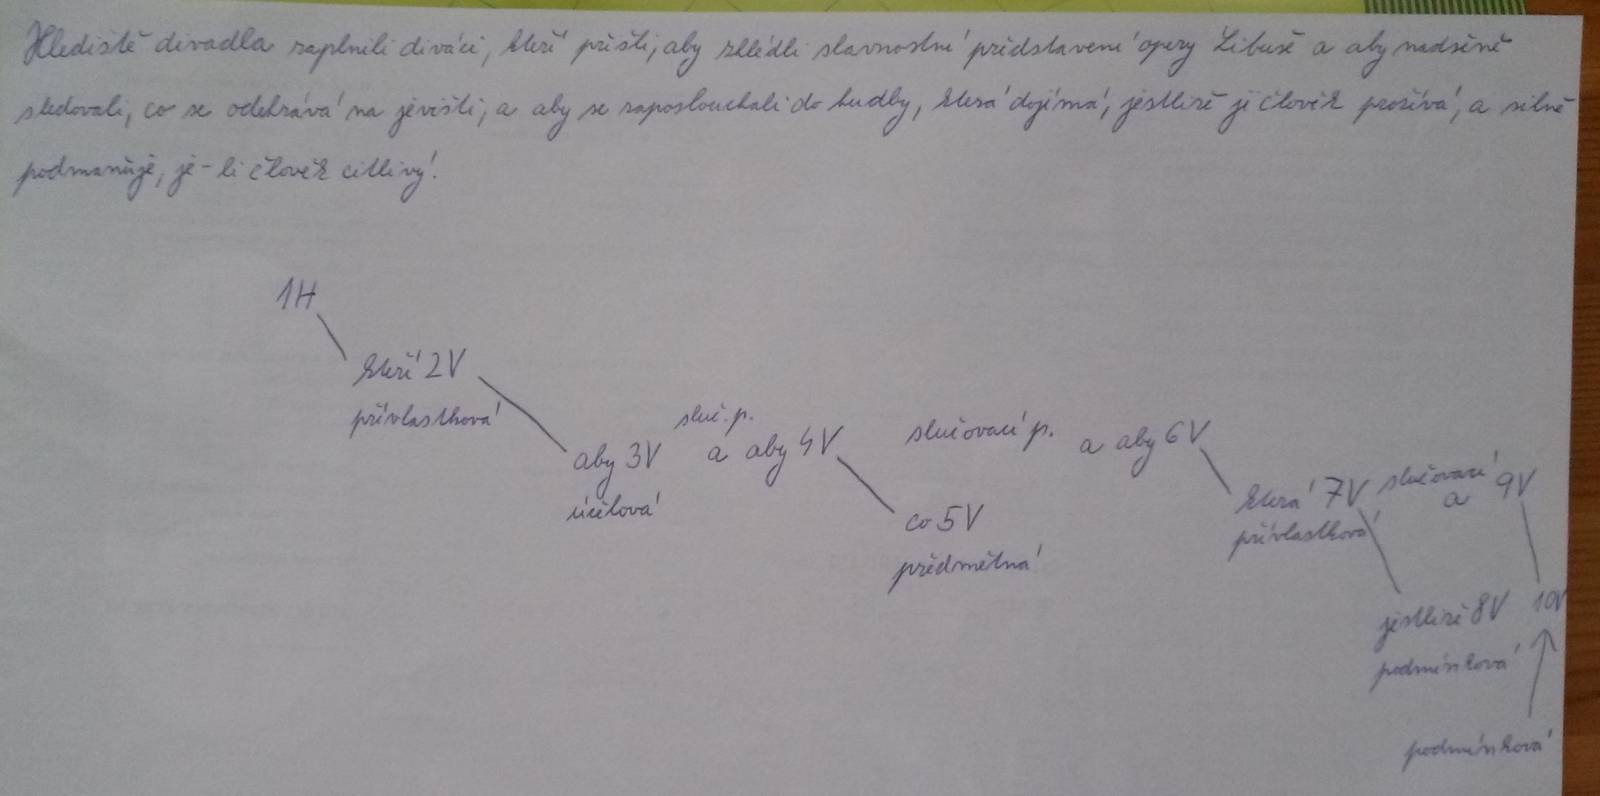 Hlediště divadla zaplnili diváci, kteří přišli, aby zhlédli slavnostní představení opery Libuše a aby nadšeně
sledovali, co se odehrává na jevišti, a aby se zaposlouchali do hudby, která dojímá, jestliže ji člověk prožívá, a silně
podmaňuje, je-li člověk citlivý.
1H
kteří 2V
přívlastková
sluč. p.
slučovací p.
aby 3V a aby 4V a aby 6V
účelová
co 5V
předmětná
která 7V slučovací a 9V
přívlastková
jestliže 8V 10V
podmínková
podmínková